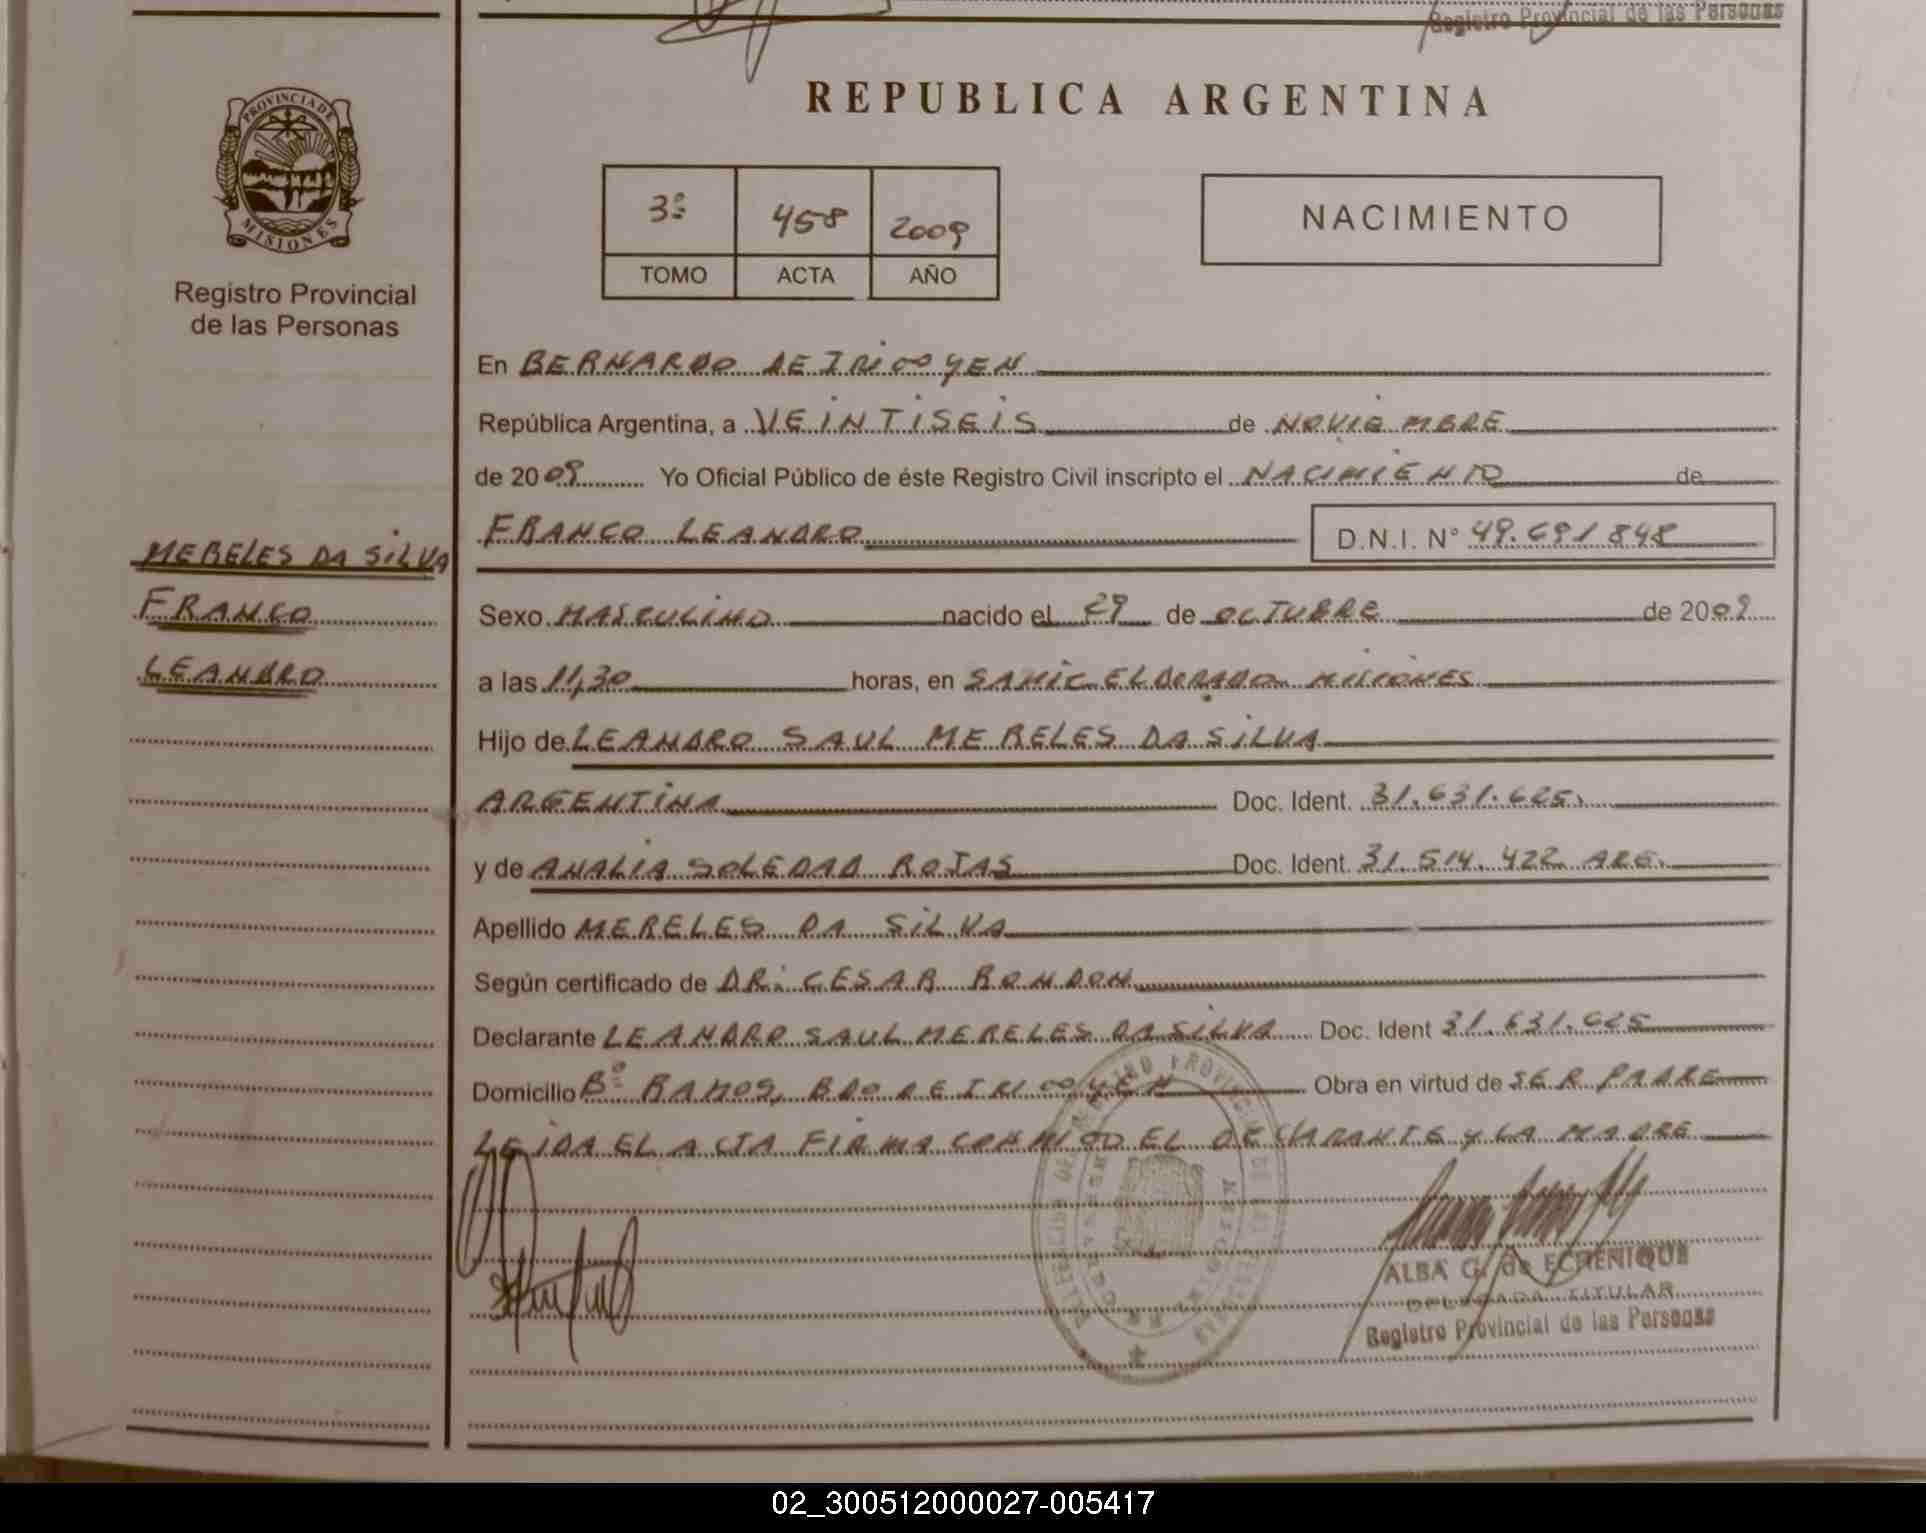 Registro Provincial de las Personas
PROVINCIA DE
MISIONES
Registro Provincial
de las Personas
MERELES DA SILVA
FRANCO
LEANDRO
REPUBLICA ARGENTINA
3º 458 2009
TOMO ACTA AÑO
NACIMIENTO
En BERNARDO DE IRIGOYEN
República Argentina, a VEINTISEIS de NOVIEMBRE
de 2009 Yo Oficial Público de éste Registro Civil inscripto el NACIMIENTO de
FRANCO LEANDRO D.N.I. N° 49.691848
Sexo MASCULINO nacido el 29 de OCTUBRE de 2009
a las 11,30 horas, en SAMIC ELDORADO MISIONES
Hijo de LEANDRO SAUL MERELES DA SILVA
ARGENTINA Doc. Ident. 31.631.625
y de ANALIA SOLEDAD ROJAS Doc. Ident. 31.514.422 ARG.
Apellido MERELES DA SILVA
Según certificado de DR. CESAR RONDON
Declarante LEANDRO SAUL MERELES DA SILVA Doc. Ident 31.631.625
Domicilio Bº RAMOS, BDO DE IRIGOYEN Obra en virtud de SER PADRE
LEIDA EL ACTA FIRMA CONMIGO EL DECLARANTE Y LA MADRE
ALBA G. de ECHENIQUE
DELEGADA TITULAR
Registro Provincial de las Personas
02_300512000027-005417